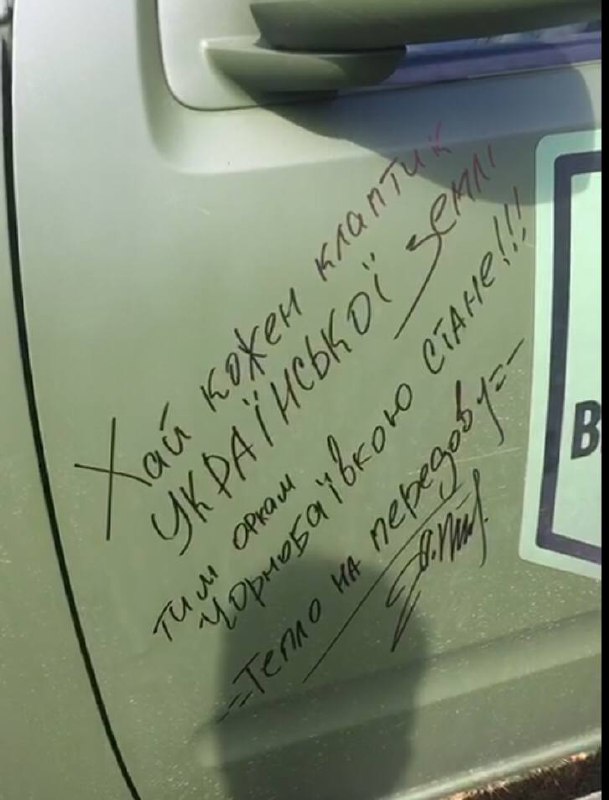 Хай кожен клаптик
УКРАЇНСЬКОЇ ЗЕМЛІ
тим оркам
ЧОРНОБАЇВКОЮ СТАНЕ!!!
=Тепло на передову=
В